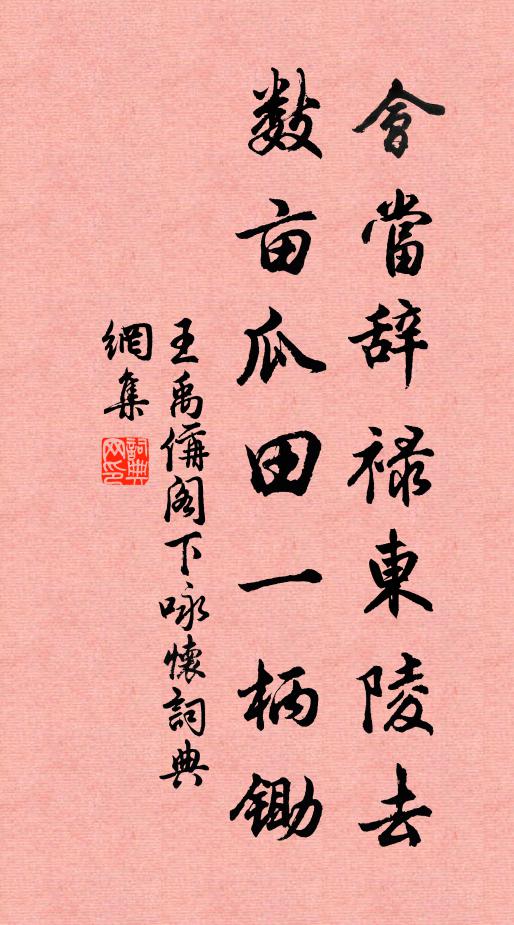 會當辞禄東陵去
数亩瓜田一柄鋤
王禹偁閣下咏懷詞典
網集
詞典
网印